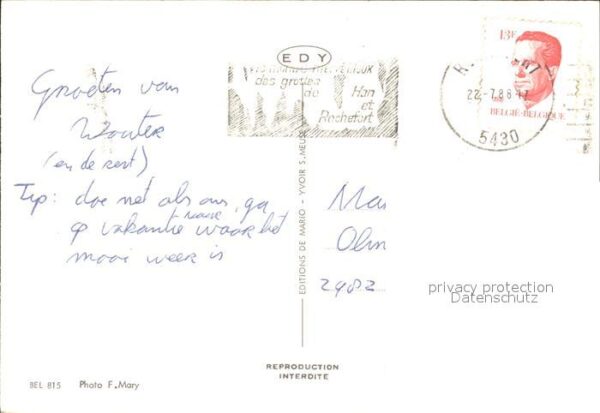 Groeten van
Wouter
(en de rest)
Tip: doe net als ons, ga
op vakantie naar waar het
mooi weer is
EDY
des grottes
de Han
et
Rochefort
13F
22.-7.86-17
BELGIË-BELGIQUE
5430
EDITIONS DE MARIO - YVOIR S. MEUSE
Mas
Olm
2482
privacy protection
Datenschutz
REPRODUCTION
INTERDITE
BEL 815 Photo F. Mary